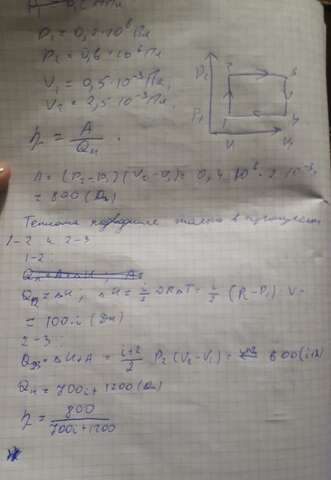 P₁ = 0,2·10⁶ Па
P₂ = 0,6·10⁶ Па
V₁ = 0,5·10⁻³ Па,
V₂ = 2,5·10⁻³ Па,
P₂
2
3
P₁
1
4
V₁
V₂
η = A / Qн .
A = (P₂-P₁)(V₂-V₁) = 0,4·10⁶·2·10⁻³
= 800 (Дж)
Теплота подводится только в процессах
1-2 и 2-3
1-2:
Q₁₂ = ΔU, ΔU = i/2 νRΔT = i/2 (P₂-P₁)·V₁
= 100i (Дж)
2-3:
Q₂₃ = ΔU+A = (i+2)/2 P₂(V₂-V₁) = 600(i+2)
Qн = 700i + 1200 (Дж)
η = 800 / (700i + 1200)